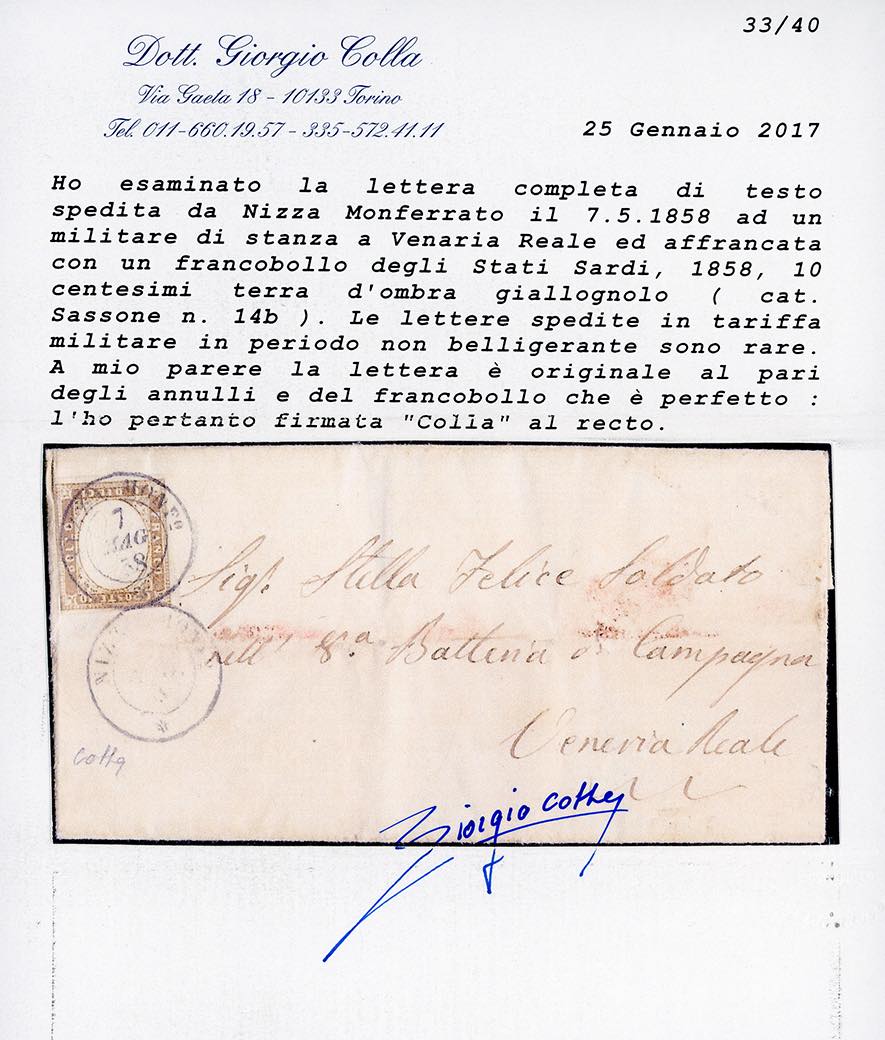 33/40
Dott. Giorgio Colla
Via Gaeta 18 - 10133 Torino
Tel. 011-660.19.57 - 335-572.41.11
25 Gennaio 2017
Ho esaminato la lettera completa di testo
spedita da Nizza Monferrato il 7.5.1858 ad un
militare di stanza a Venaria Reale ed affrancata
con un francobollo degli Stati Sardi, 1858, 10
centesimi terra d'ombra giallognolo ( cat.
Sassone n. 14b ). Le lettere spedite in tariffa
militare in periodo non belligerante sono rare.
A mio parere la lettera è originale al pari
degli annulli e del francobollo che è perfetto :
l'ho pertanto firmata "Colla" al recto.
7
MAG
58
Sigr. Stella Felice Soldato
nell' 8.a Batteria di Campagna
Veneria Reale
Colla
Giorgio Colla